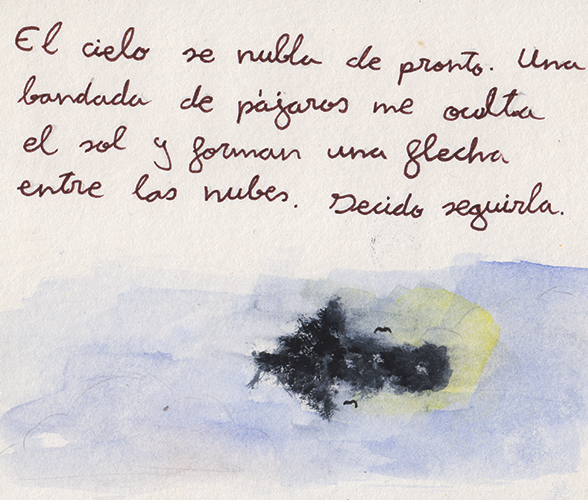 El cielo se nubla de pronto. Una
bandada de pájaros me oculta
el sol y forman una flecha
entre las nubes. Decido seguirla.